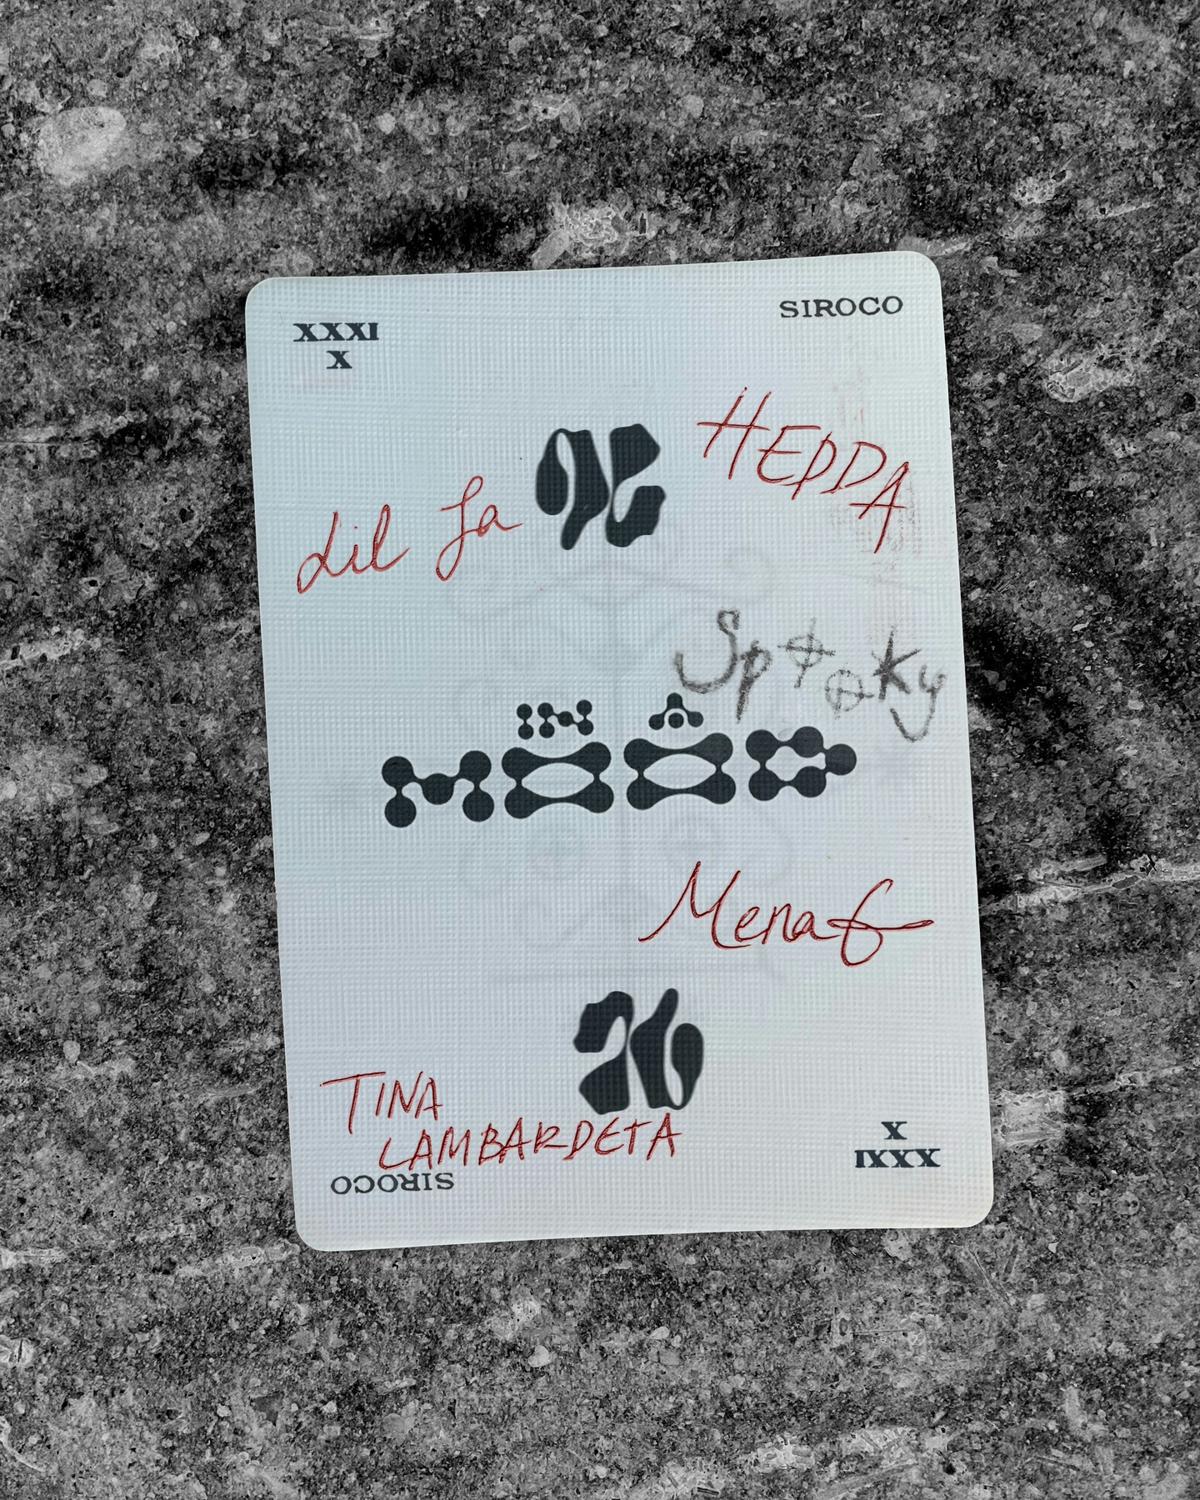 XXXI
X
SIROCO
HEDDA
Lil Ja
Spooky
IN A
MOOD
Mena G
TINA
LAMBARDETA
SIROCO
X
XXXI